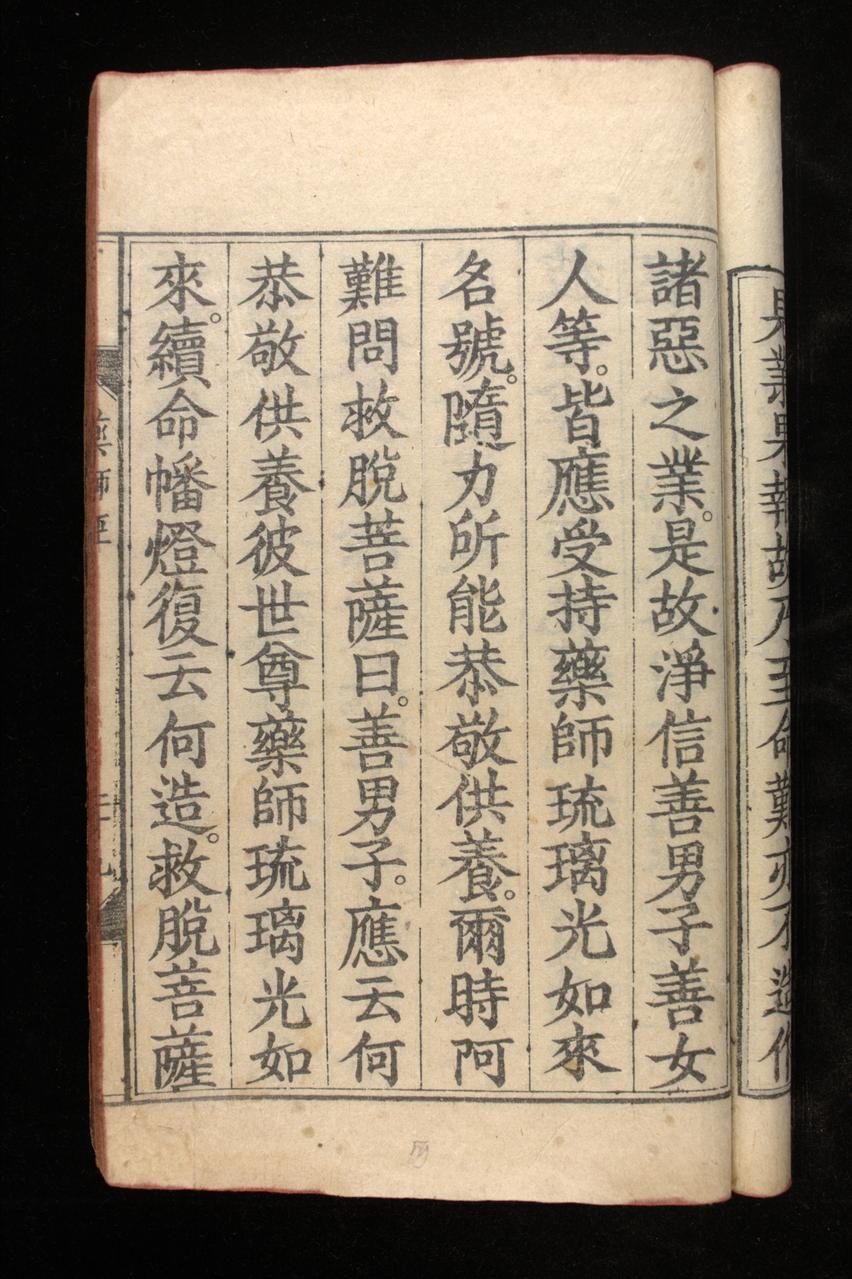 業果報故乃至命難亦不造作
諸惡之業。是故淨信善男子善女
人等。皆應受持藥師琉璃光如來
名號。隨力所能恭敬供養。爾時阿
難問救脫菩薩曰。善男子。應云何
恭敬供養彼世尊藥師琉璃光如
來。續命幡燈復云何造。救脫菩薩
藥師經